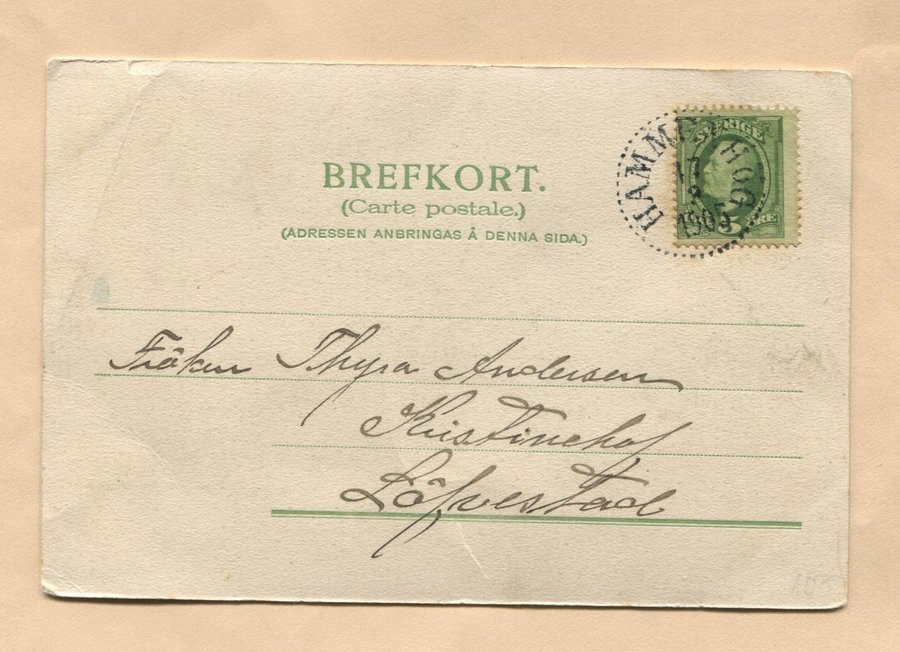 BREFKORT.
(Carte postale.)
(ADRESSEN ANBRINGAS Å DENNA SIDA.)
SVERIGE
5 ÖRE
HAMMENHÖG
1905
Fröken Thyra Andersen
Kristinehof
Löfvestad